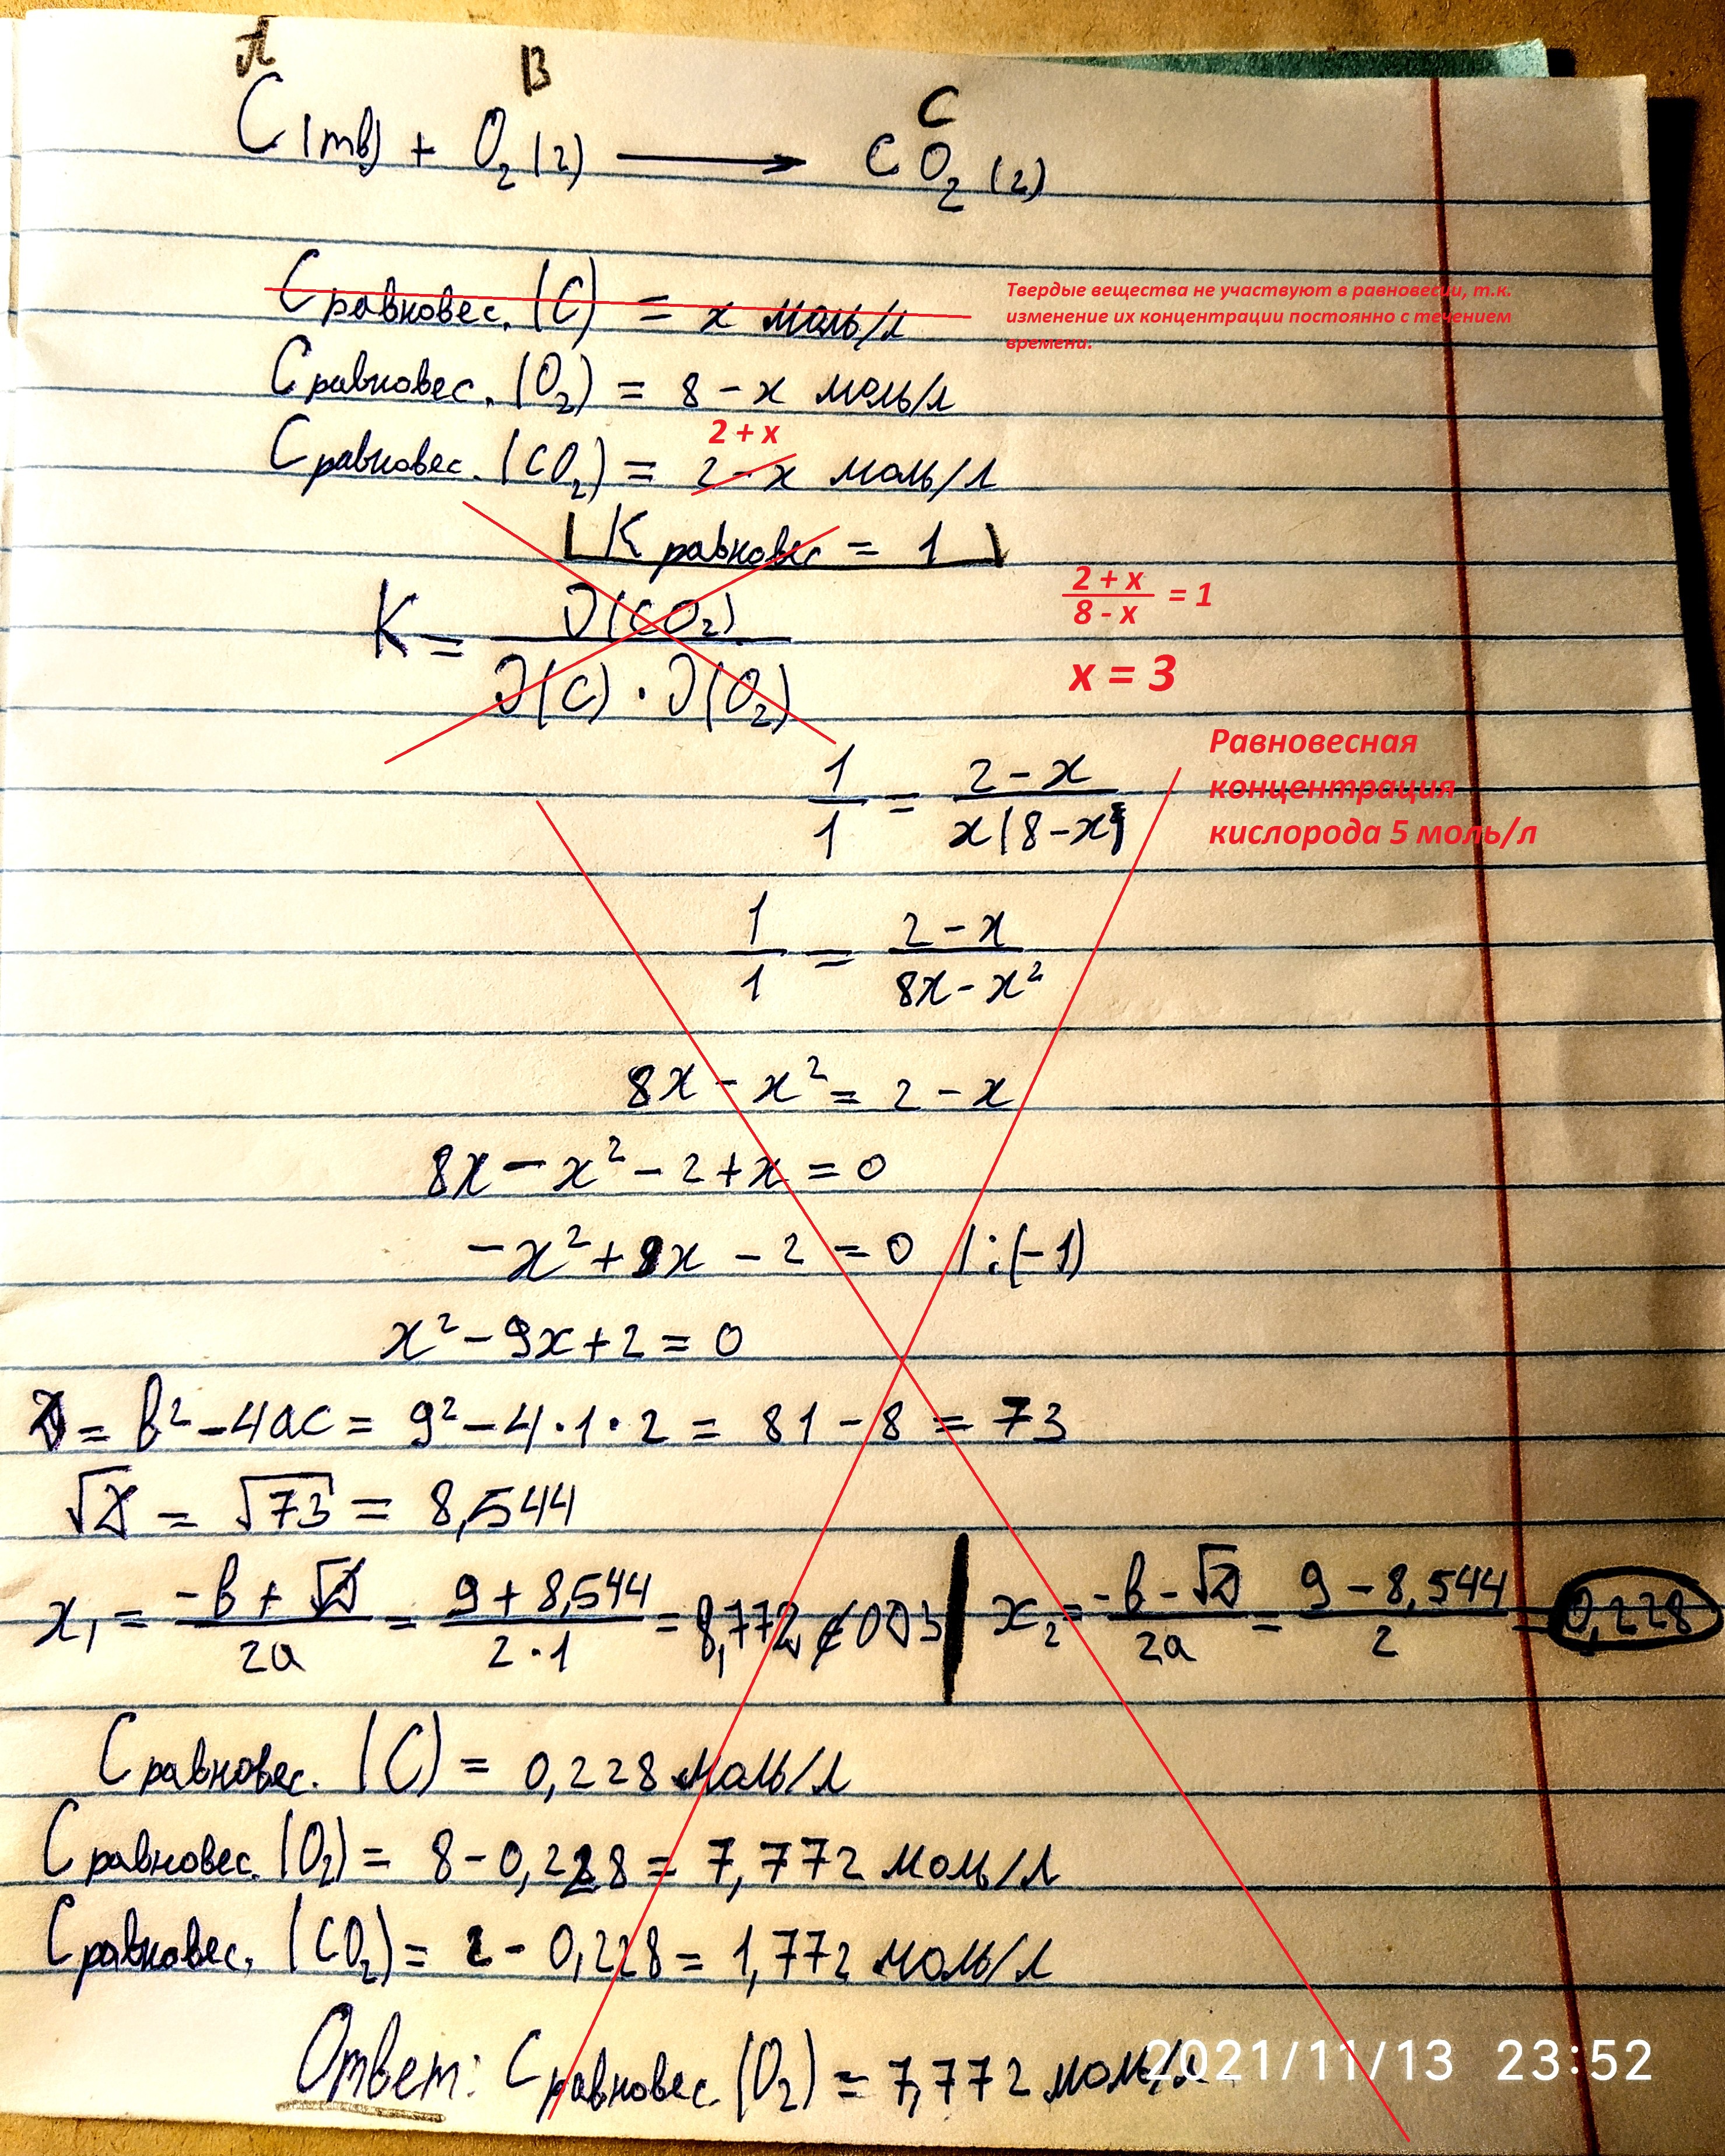 A B C
C(тв) + O₂(г) ⟶ CO₂(г)
Cравновес. (C) = x моль/л
Твердые вещества не участвуют в равновесии, т.к.
изменение их концентрации постоянно с течением
времени.
Cравновес. (O₂) = 8 - x моль/л
2 + x
Cравновес. (CO₂) = 2 - x моль/л
Kравновес = 1
K = ϑ(CO₂) / ϑ(C) · ϑ(O₂)
2 + x / 8 - x = 1
x = 3
Равновесная
концентрация
кислорода 5 моль/л
1/1 = 2 - x / x(8 - x)
1/1 = 2 - x / 8x - x²
8x - x² = 2 - x
8x - x² - 2 + x = 0
-x² + 9x - 2 = 0 | :(-1)
x² - 9x + 2 = 0
D = b² - 4ac = 9² - 4·1·2 = 81 - 8 = 73
√D = √73 = 8,544
x₁ = -b + √D / 2a = 9 + 8,544 / 2·1 = 8,772 ∉ ОДЗ | x₂ = -b - √D / 2a = 9 - 8,544 / 2 = 0,228
Cравновес. (C) = 0,228 моль/л
Cравновес. (O₂) = 8 - 0,228 = 7,772 моль/л
Cравновес. (CO₂) = 2 - 0,228 = 1,772 моль/л
Ответ: Cравновес. (O₂) = 7,772 моль/л
2021/11/13 23:52